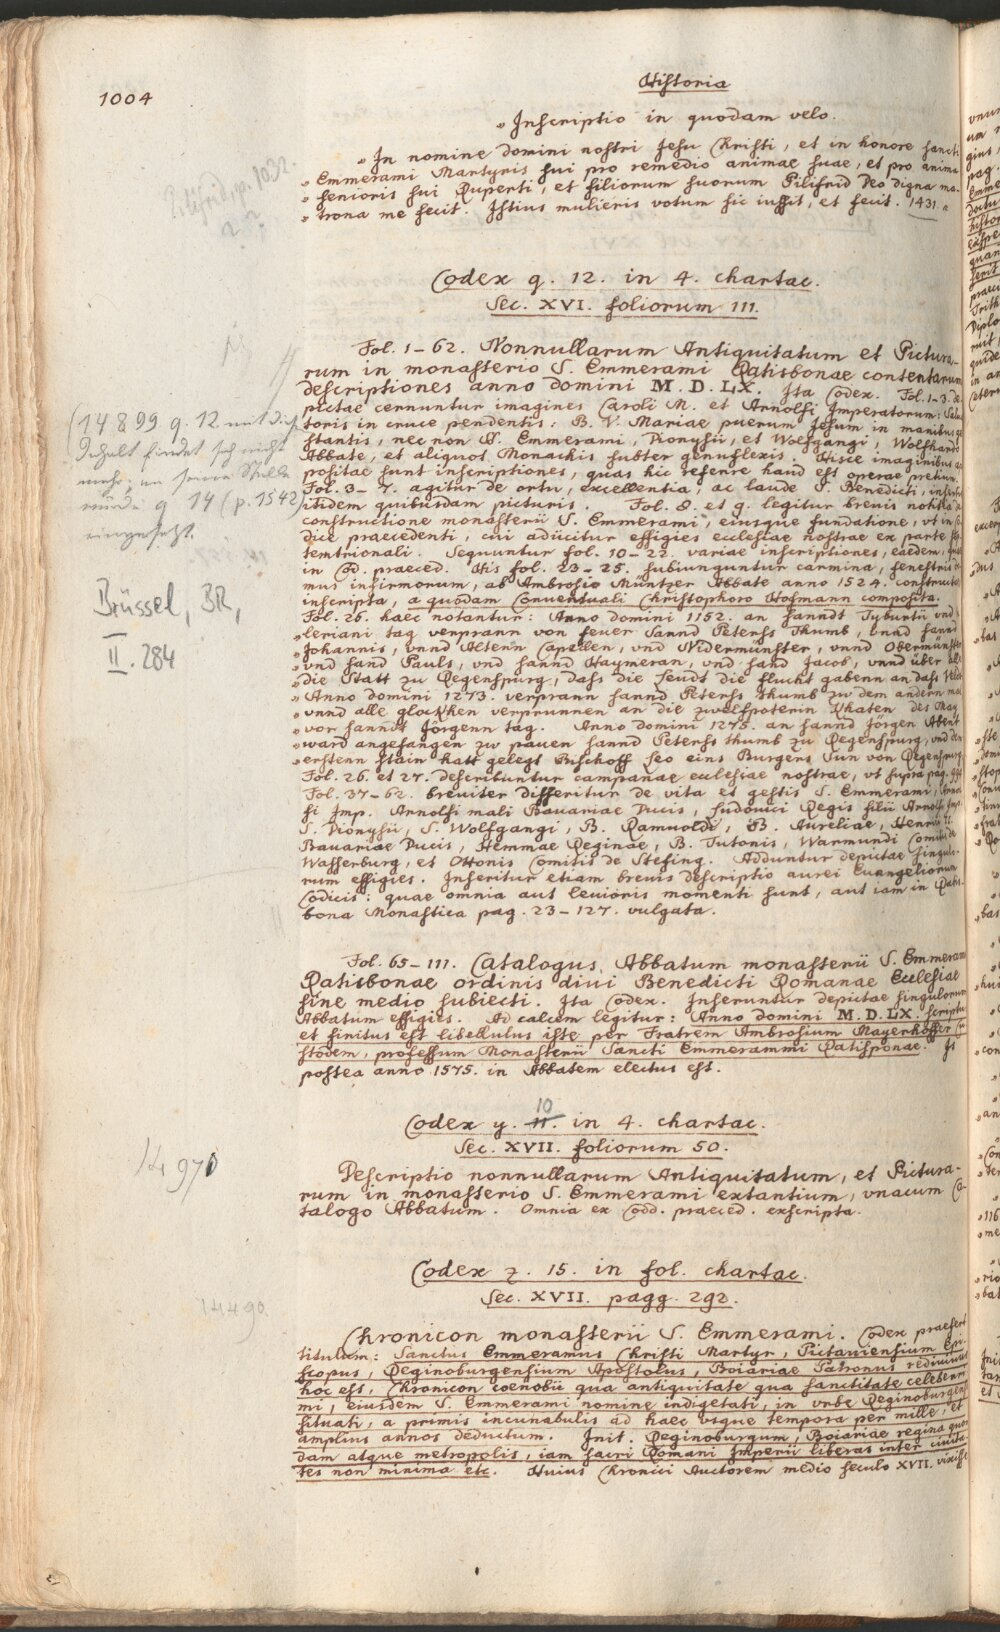 1004
Historia
„Inscriptio in quodam velo.
„In nomine domini nostri Jesu Christi, et in honore sancti
„Emmerami Martyris sui pro remedio animae suae, et pro anima
„senioris sui Ruperti, et filiorum suorum Pilifrid Deo digna ma-
„trona me fecit. Istius mulieris votum sic iussit, et fecit. 1431“
Pilifrid, pp. 1032.
Codex q. 12. in 4. chartac.
Sec. XVI. foliorum 111.
Fol. 1-62. Nonnullarum Antiquitatum et Pictura-
rum in monasterio S. Emmerami Ratisbonae contentarum
descriptiones anno domini M.D.LX. Ita Codex. Fol. 1-3. de-
pictae cernuntur imagines Caroli M. et Arnolfi Imperatorum: Salua-
toris in cruce pendentis: B. V. Mariae puerum Jesum in manibus ge-
stantis, nec non S. Emmerami, Dionysii, et Wolfgangi, Wolfhardo
Abbate, et aliquot Monachis subter genuflexis. Hisce imaginibus ap-
positae sunt inscriptiones, quas hic referre haud est operae pretium.
Fol. 3-7. agitur de ortu, excellentia, ac laude S. Benedicti, insertis
itidem quibusdam picturis. Fol. 8. et 9. legitur brevis notitia de
constructione monasterii S. Emmerami, eiusque fundatione, vt in Co-
dice praecedenti, cui adiicitur effigies ecclesiae nostrae ex parte sep-
temtrionali. Sequuntur fol. 10-22. variae inscriptiones, eaedem, quae
in Cod. praeced. His fol. 23-25. subiunguntur carmina, fenestris do-
mus infirmorum, ab Ambrosio Müntzer Abbate anno 1524. constructae
inscripta, a quodam Conventuali Christophoro Hofmann composita.
Fol. 26. haec notantur: Anno domini 1152. an sanndt Tyburtii und
„leriani tag verprann von feuer sannd Peterss Thumb, vnnd sannd
„Johannis, vnnd Altenn Capellen, vnd Nidermünster, vnnd Obermünster
„vnd sand Pauls, vnd sannd Haymeran, vnd sand Jacob, vnnd über alle
„die Statt zu Regenspurg, dass die leudt die flucht gabenn an dass Veldt
„Anno domini 1273. verprann sannd Peterss thumb zu dem andern mal
„vnnd alle glockken verprunnen an die zwelfpoterin
„vor sanndt Jörgenn tag. Anno domini 1275. an sannd Jörgen Abent
„ward angefangen zu pauen sannd Peterss thumb zu Regenspurg, vnd den
„erstenn stain hatt gelegt Bischoff Leo eins Burgers Sun von Regenspurg
Fol. 26. et 27. describuntur campanae ecclesiae nostrae, vt supra pag. 
Fol. 37-62. breuiter disseritur de vita et gestis S. Emmerami, Arnol-
fi Imp. Arnolfi mali Bauariae Ducis, Ludouici Regis filii Arnolfi Imp.
S. Dionysii, S. Wolfgangi, B. Ramuoldi, B. Aureliae, Henrici II.
Bauariae Ducis, Hemmae Reginae, B. Tutonis, Warmundi Comitis de
Wasserburg, et Ottonis Comitis de Stefing. Adduntur depictae singulo-
rum effigies. Inseritur etiam brevis descriptio aurei Euangeliorum
Codicis: quae omnia aut leuioris momenti sunt, aut iam in Ratis-
bona Monastica pag. 23-127. vulgata.
(14899 q. 12 mit diesem
Inhalt findet sich nicht
mehr; an seine Stelle
wurde q 14 (p. 1542)
eingesetzt.
Brüssel, BR,
II. 284
Fol. 65-111. Catalogus Abbatum monasterii S. Emmerami
Ratisbonae ordinis diui Benedicti Romanae Ecclesiae
sine medio subiecti. Ita Codex. Inseruntur depictae singulorum
Abbatum effigies. Ad calcem legitur: Anno domini M.D.LX. scriptus
et finitus est libellulus iste per Fratrem Ambrosium Mayerhoffer Cu-
stodem, professum Monasterii Sancti Emmerammi Ratisponae. Is
postea anno 1575. in Abbatem electus est.
Codex y. 11. 10 in 4. chartac.
Sec. XVII. foliorum 50.
14970
Descriptio nonnullarum Antiquitatum, et Pictura-
rum in monasterio S. Emmerami extantium, vnacum Ca-
talogo Abbatum. Omnia ex Codd. praeced. exscripta.
Codex z. 15. in fol. chartac.
Sec. XVII. pagg. 292.
14490
Chronicon monasterii S. Emmerami. Codex praefert
titulum: Sanctus Emmeramus Christi Martyr, Pictauiensium Epi-
scopus, Reginoburgensium Apostolus, Boiariae Patronus rediuiuus
hoc est, Chronicon coenobii qua antiquitate qua sanctitate celeberri-
mi, eiusdem S. Emmerami nomine indigetati, in vrbe Reginoburgensi
situati, a primis incunabulis ad haec vsque tempora per mille, et
amplius annos deductum. Init. Reginoburgum, Boiariae regina quon-
dam atque metropolis, iam sacri Romani Imperii liberas inter ciuita-
tes non minima etc. Huius Chronici Auctorem medio seculo XVII. vixisse